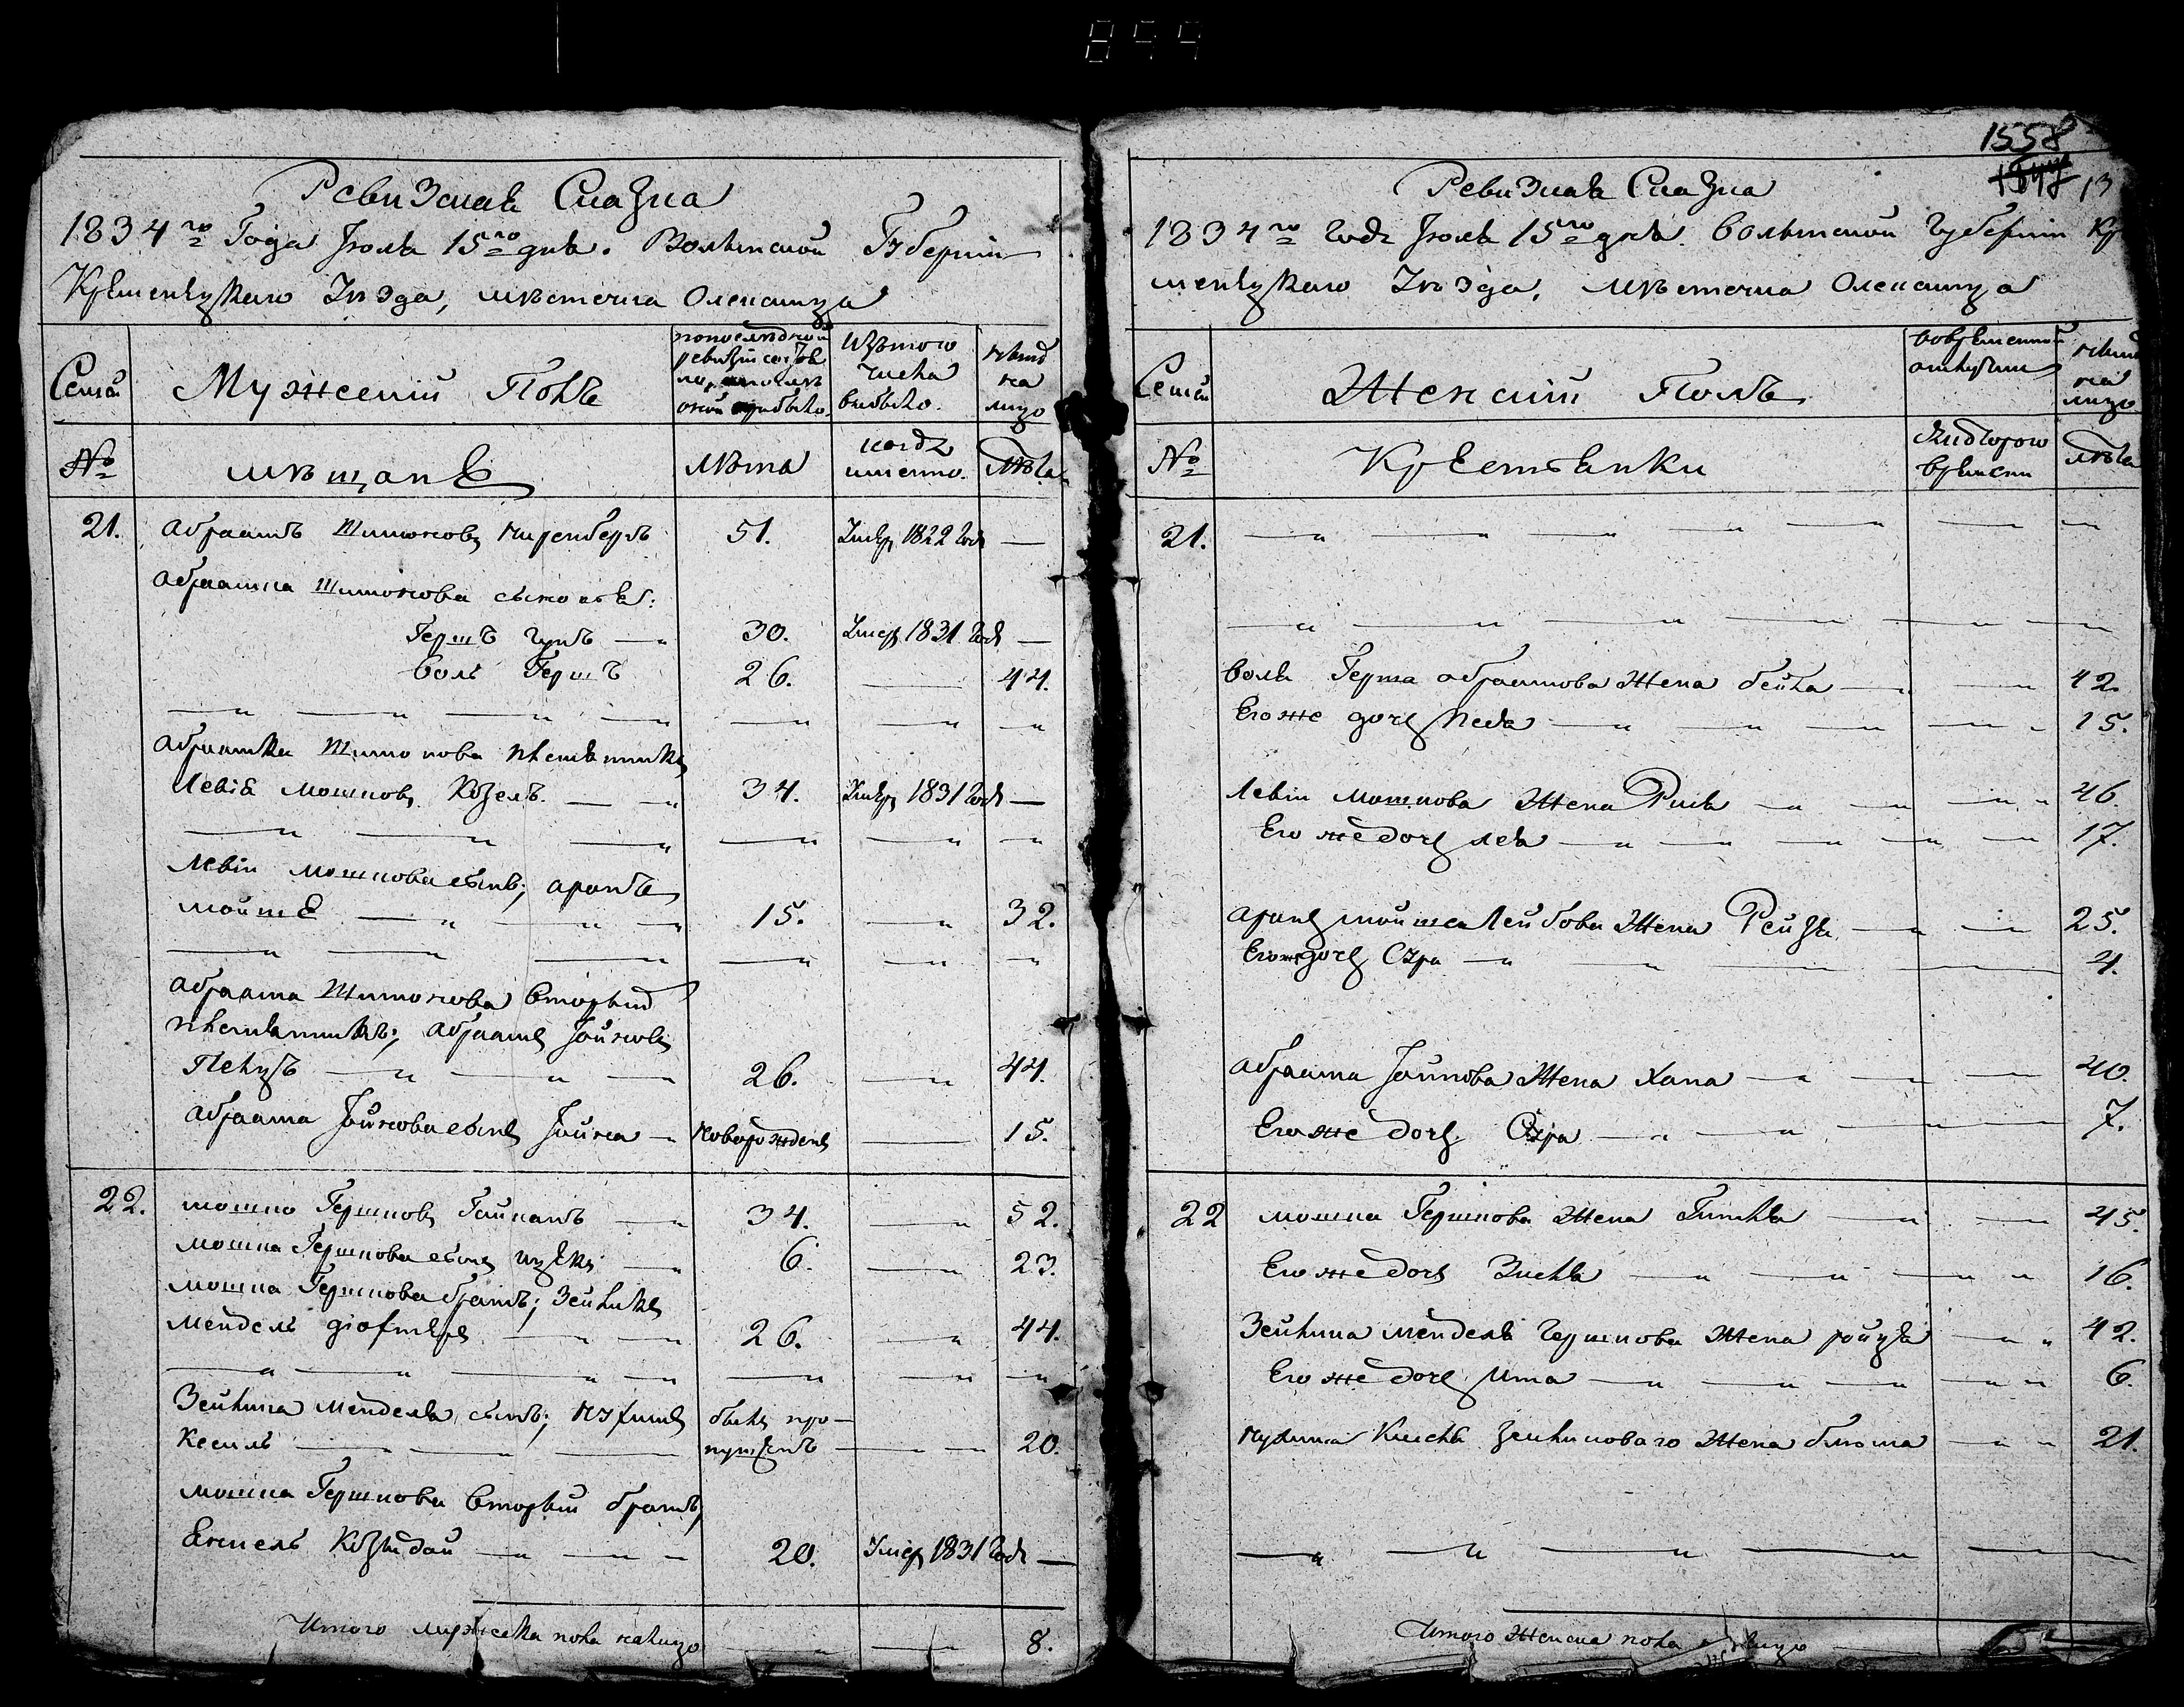 1558
Ревизская Сказка
1834го Года Июля 15го дня. Волынской Губернии
Кременецкаго Уезда, местечка Олексинца
Семьи
Мужеский Полъ
по последней ревизии состояло и после оной прибыло.
Изъ того числа выбыло.
ныне на лицо
№
мещане
лета
когда именно.
лета
21. Абрамъ Шимоновъ Киренбергъ 51. Умеръ 1822 года —
Абрамка Шимонова сыновья:
Гершъ — 30. Умеръ 1831 года —
Воль Гершъ 26. — 44.
Абрамка Шимонова племянникъ
Левiе Мошковъ Козелъ 34. Умеръ 1831 года —
Левiи Мошкова сынъ; Аронъ
Мойше 15. — 32.
Абрама Шимонова вторый
племянникъ; Абрамъ Iойновъ
Пелцъ 26. — 44.
Абрама Iойнова сынъ Iойна новорожденъ — 15.
22. Мошко Гершковъ Гойхманъ 34. — 52.
Мошка Гершкова сынъ Ицекъ 6. — 23.
Мошка Гершкова братъ; Зейликъ
Мендель 26. — 44.
Зейлика Менделя сынъ; Нухимъ былъ про-
Кесиль пущенъ — 20.
Мошка Гершкова вторый братъ,
Енкель 20. Умеръ 1831 года —
Итого мужеска пола налицо 8.
Ревизская Сказка
1834го года Июля 15го дня. Волынской Губернии Кре
менецкаго Уезда, местечка Олексинца
Семьи
Женский Полъ
во временной отлучке
ныне на лицо
№
Крестьянки
съ которого времени
лета
21.
Воля Герша Абрамова жена Бейла 42.
Его же дочь Неда 15.
Левiи Мошкова жена Рися 46.
Его же дочь Лея 17.
Аронъ Мойша Лейбова жена Рейзя 25.
Его же дочь Сура 4.
Абрама Iойнова жена Хана 40.
Его же дочь Сура 7.
22 Мошка Гершкова жена Гитля 45.
Его же дочь Зисля 16.
Зейлика Менделя Гершкова жена Ройзя 42.
Его же дочь Ита 6.
Нухима Кисиля Зейликоваго жена Блюма 21.
Итого женска пола на лицо